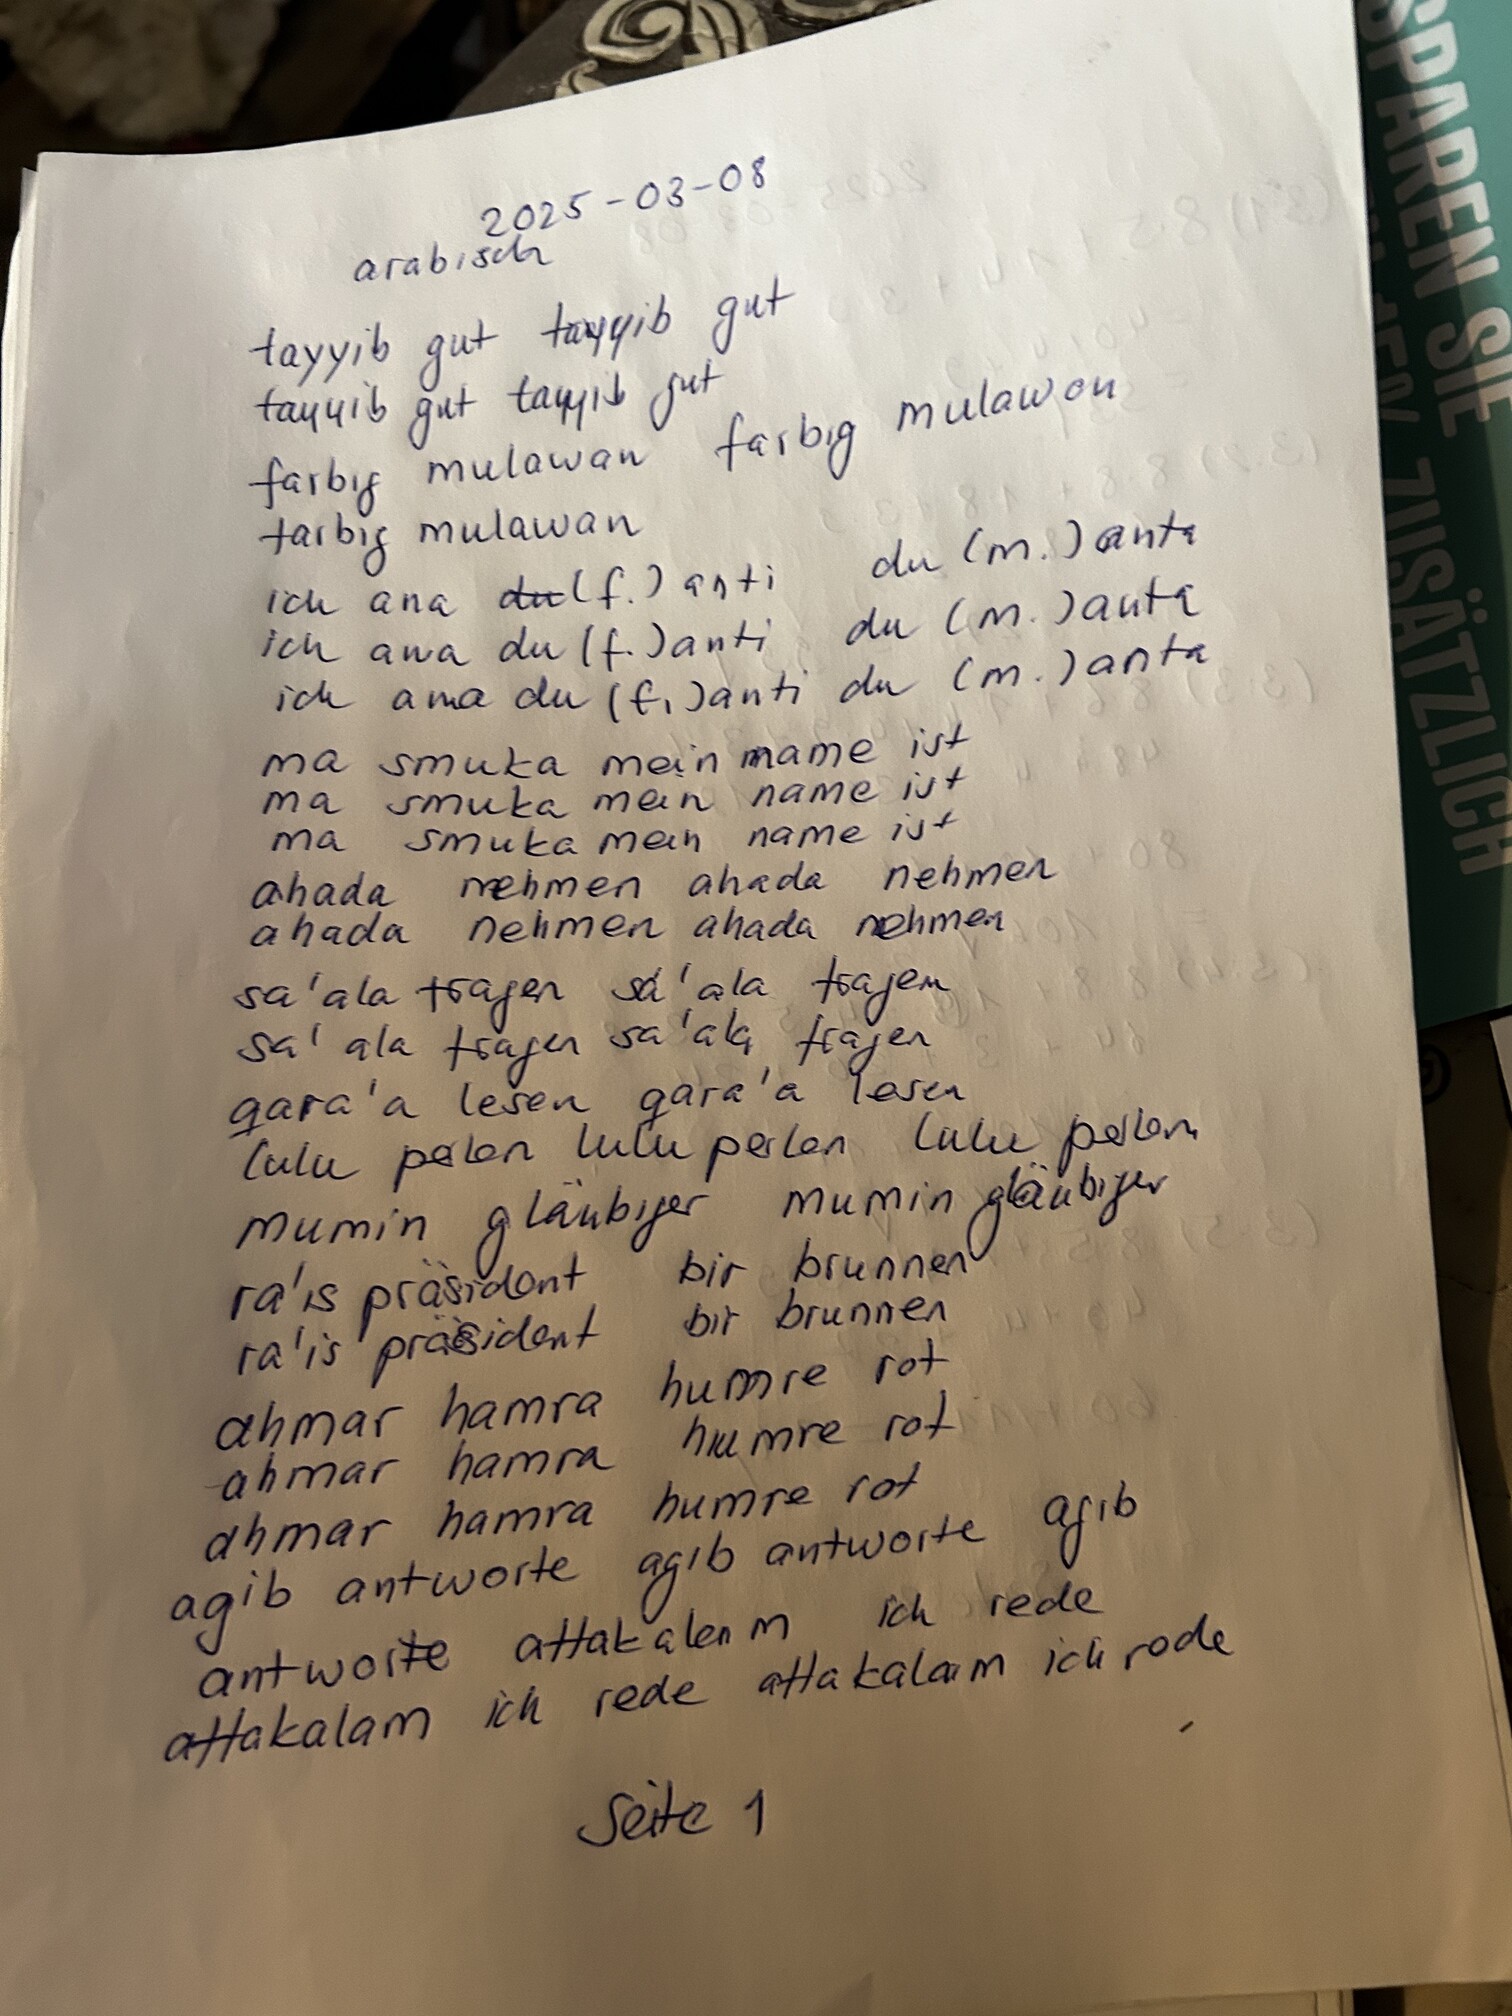 2025-03-08
arabisch
tayyib gut tayyib gut
tayyib gut tayyib gut
farbig mulawan farbig mulawan
farbig mulawan
ich ana du (f.) anti du (m.) anta
ich ana du (f.) anti du (m.) anta
ich ana du (f.) anti du (m.) anta
ma smuka mein name ist
ma smuka mein name ist
ma smuka mein name ist
ahada nehmen ahada nehmen
ahada nehmen ahada nehmen
sa'ala fragen sa'ala fragen
sa'ala fragen sa'ala fragen
qara'a lesen qara'a lesen
lulu perlen lulu perlen lulu perlen
mumin gläubiger mumin gläubiger
ra'is präsident bir brunnen
ra'is präsident bir brunnen
ahmar hamra humre rot
ahmar hamra humre rot
ahmar hamra humre rot
agib antworte agib antworte agib
antworte attakalam ich rede
attakalam ich rede attakalam ich rede
Seite 1
SPAREN SIE
ZUSÄTZLICH